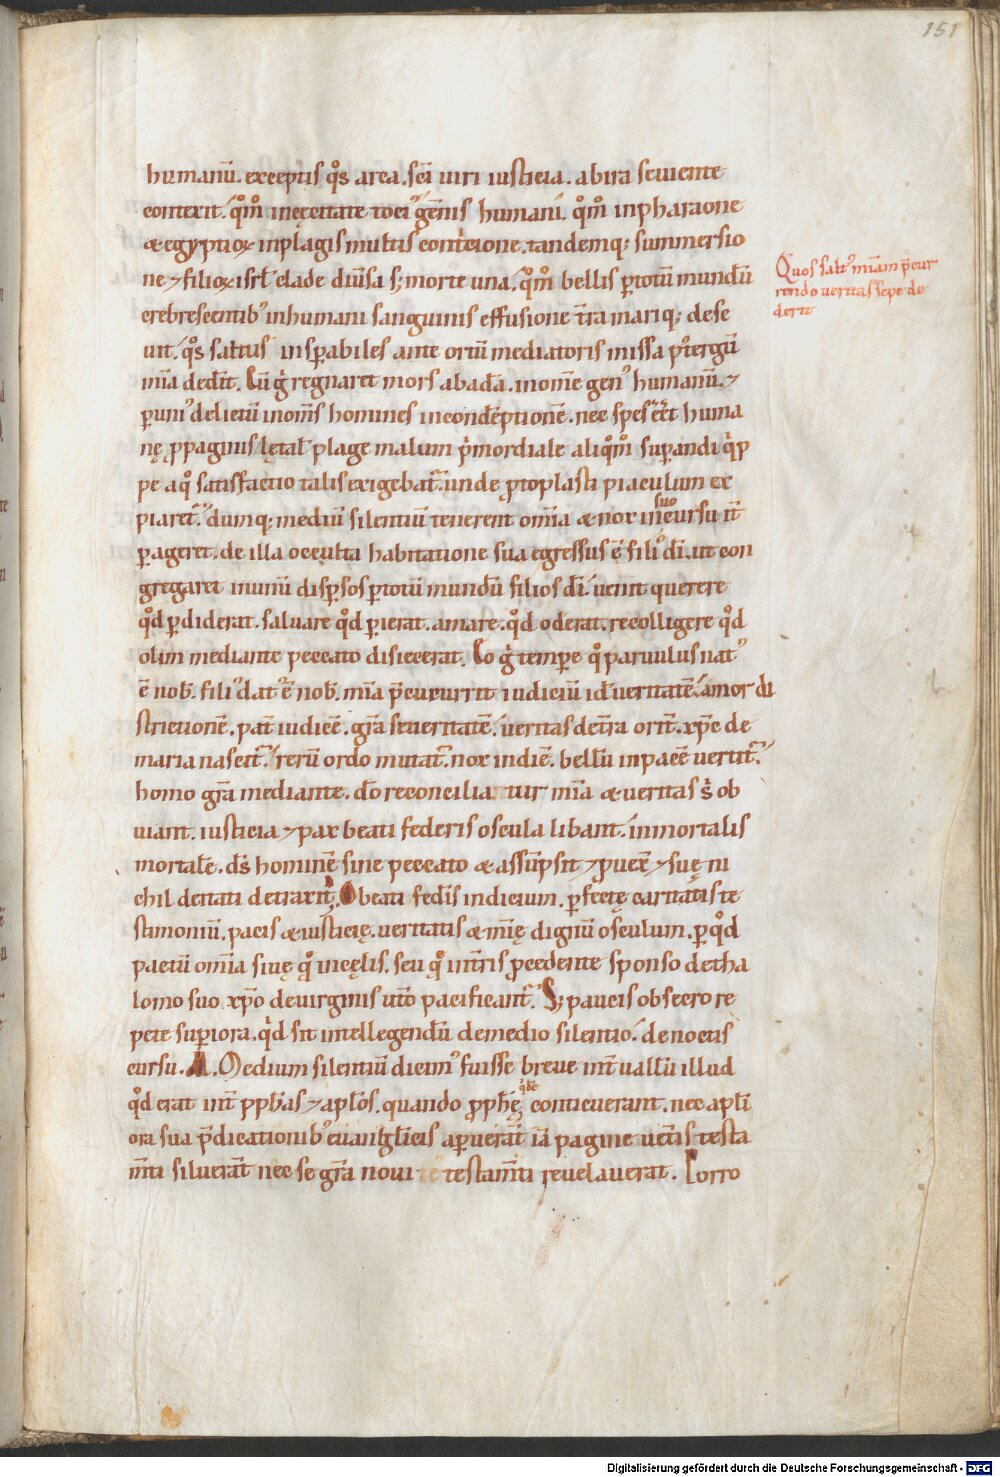 151
humanū. exceptis qͦs arca. sc̄i uiri iusticia. ab ira seuiente
contexit. qͦm̊ inęcęitate toci᾽ gen̄is humani. qͦm̊ inpharaone
& egyptioꝝ inplagis multis contcione. tandemq; summersio
ne ⁊ filioꝝ isrl̄ clade diu͛sa s; morte una. qͦm̊ bellis ꝑtotū mundū
crebrescentib᾽ inhumani sanguinis effusione t͛ra mariq; dese
uit. qͦs saltus insuꝑabiles ante ortū mediatoris missa p᾽tergū
mīa ded͛it. Cū g͛ regnaret mors abadā. inom̄e gen᾽ humanū. ⁊
ꝑ uni᾽ delictū inom̄s homines incondēptionē. nec spes eēt huma
nę ꝓpaginis lętal̄ plage malum p͛mordiale aliqͦm̊ suꝑandi q͛p
pe aqͦ satisfactio talis exigebat᷑ unde ꝓtoplasti piaculum ex
piaret᷑. dumq; mediū silentiū tenerent om̄ia & nox in suo cursu it͛
ꝑageret. de illa occulta habitatione sua egressus ē fili᾽ dī. ut con
gregaret inunū disꝑsos ꝑtotū mundū filios dī. uenit querere
qͦd ꝑdiderat. saluare qͦd ꝑierat. amare. qͦd oderat. recolligere qͦd
olim mediante peccato disiecerat. Eo g͛ tempore qͦ paruulus nat᾽
ē nob̄. fili᾽ dat᾽ ē nob̄. mīa p̄cucurrit iudiciū id ē ueritatē. amor di
strictionē. pat͛ iudicē. gr̄a seueritatē. ueritas det͛ra orit᷑. xp̄c de
maria nascit᷑. rerū ordo mutat᷑. nox indiē. bellū inpacē uertit᷑.
homo gr̄a mediante. dō reconciliatur mīa & ueritas s͛ ob
uiant. iusticia ⁊ pax beati federis oscula libant. inmortalis
mortalē. d̄s hominē sine peccato & assūpsit ⁊ ꝓuexͭ ⁊ suę ni
chil deitati detraxit. O beati fed͛is indicium. ꝑfectę caritatis te
stimoniū. pacis & iusticię. ueritatis & mīę dignū osculum. ꝑ qͦd
pactū om̄ia siuę qͦ incęlis. seu qͦ int͛ris ꝓcedente sponso detha
lomo suo. xp̄o deuirginis ut͛o pacificant᷑. S; paucis obsecro re
pete suꝑiora. q͛d sit intellegendū de medio silentio. de noctis
cursu. M. Medium silentiū dicim᾽ fuisse breue int͛uallū illud
qͦd erat int͛ ꝓph̄as ⁊ apl̄os. quando ꝓph̄ę conticuerant. nec apl̄i
ora sua p̄dicationib᾽ euangl̄icis aꝑuerant iā pagine uet͛is testa
m̄ti siluerāt nec se gr̄a noui testam̄ti reuelauerat. Porro
Quos salt᾽ mīam p̄cur
rendo ueritas sepe de
derit
Digitalisierung gefördert durch die Deutsche Forschungsgemeinschaft - DFG